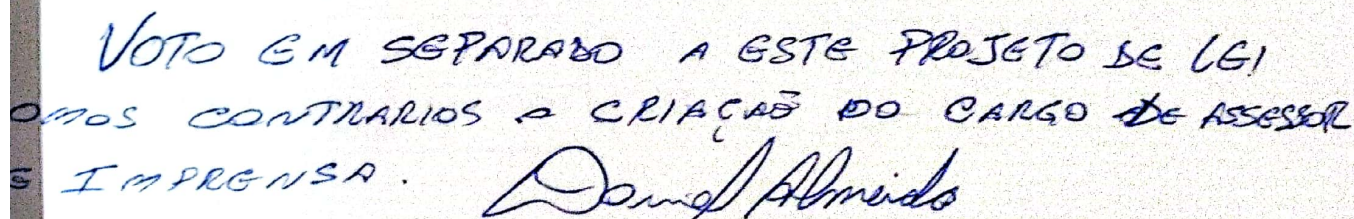 VOTO EM SEPARADO A ESTE PROJETO DE LEI
OMOS CONTRARIOS A CRIAÇAÕ DO CARGO DE ASSESSOR
E IMPRENSA.
Daniel Almeida